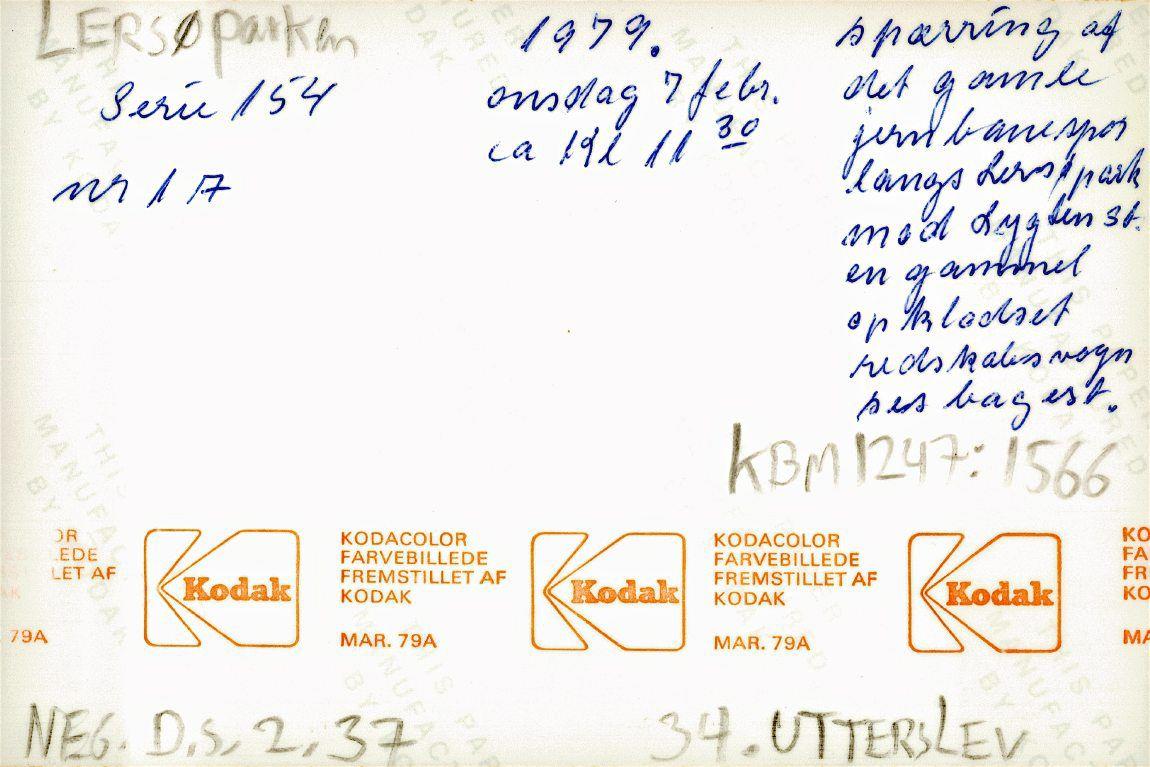 LERSØparken
Serie 154
nr 17
1979.
onsdag 7 febr.
ca Kl 11 30
spærring af
det gamle
jernbanespor
langs Lersøpark
mod Lygten st.
en gammel
opklodset
redskabsvogn
ses bagest.
KBM1247:1566
OR
LEDE
LET AF
AK
79A
Kodak
KODACOLOR
FARVEBILLEDE
FREMSTILLET AF
KODAK
MAR. 79A
Kodak
KODACOLOR
FARVEBILLEDE
FREMSTILLET AF
KODAK
MAR. 79A
Kodak
KO
FA
FR
KO
MA
NEG. D.S. 2. 37
34. UTTERSLEV
THIS PAPER
MANUFACTURED
BY KODAK